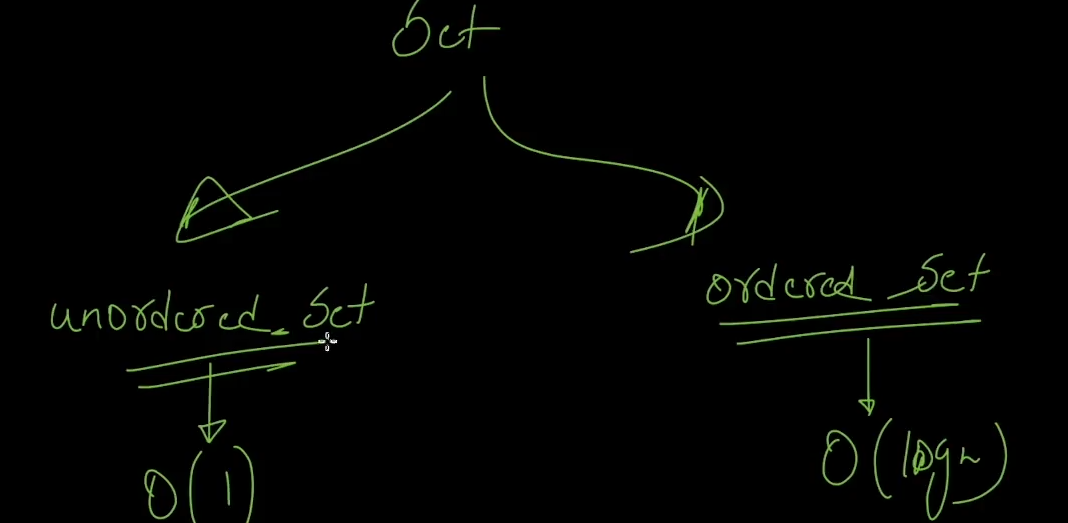 Set
unordered_Set
ordered_Set
O(1)
O(logn)